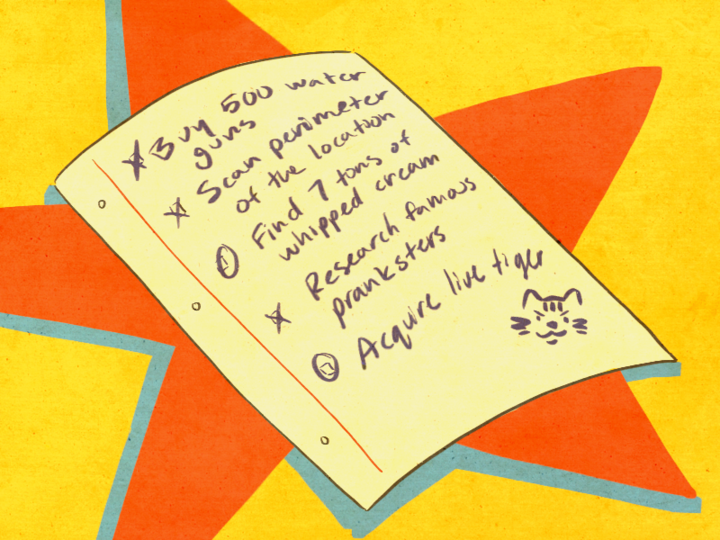 Buy 500 water
guns
Scan perimeter
of the location
Find 7 tons of
whipped cream
Research famous
pranksters
Acquire live tiger